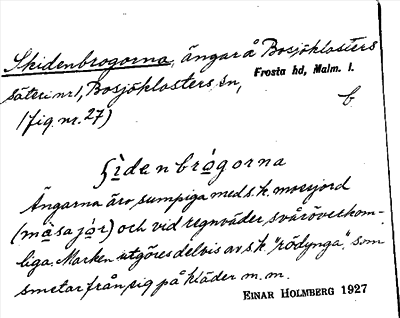 Skidenbrogorna, ängar å Bosjöklosters
säteri nr 1, Bosjöklosters sn,
Frosta hd, Malm. l.
(fig. nr. 27)
b
ʃìdenbrògorna
Ängarna äro sumpiga med s.k. mosejord
(måsajòr) och vid regnväder, svåröverkom-
liga. Marken utgöres delvis av s.k. "rödynga", som
smetar från sig på kläder m.m.
EINAR HOLMBERG 1927